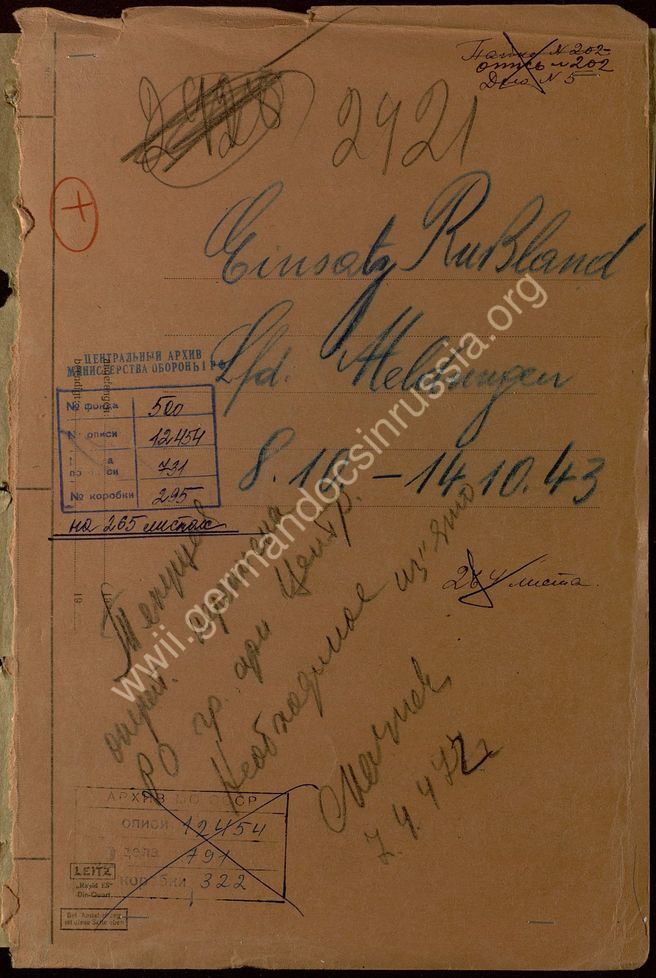 Папка № 202
опись № 202
Дело № 5
2920
2921
+
Einsatz Rußland
Lfd. Meldungen
8.10. – 14.10.43
ЦЕНТРАЛЬНЫЙ АРХИВ
МИНИСТЕРСТВА ОБОРОНЫ РФ
№ фонда 500
№ описи 12454
731
№ коробки 295
на 265 листах
264 листа.
Текущие
РО гр. арм Центр.
Необходимое из"ято
7.4.47г
АРХИВ МО СССР
описи 12454
дела 791
коробки 322
LEITZ
"Rapid ES"
Din-Quart
19
www.germandocsinrussia.org